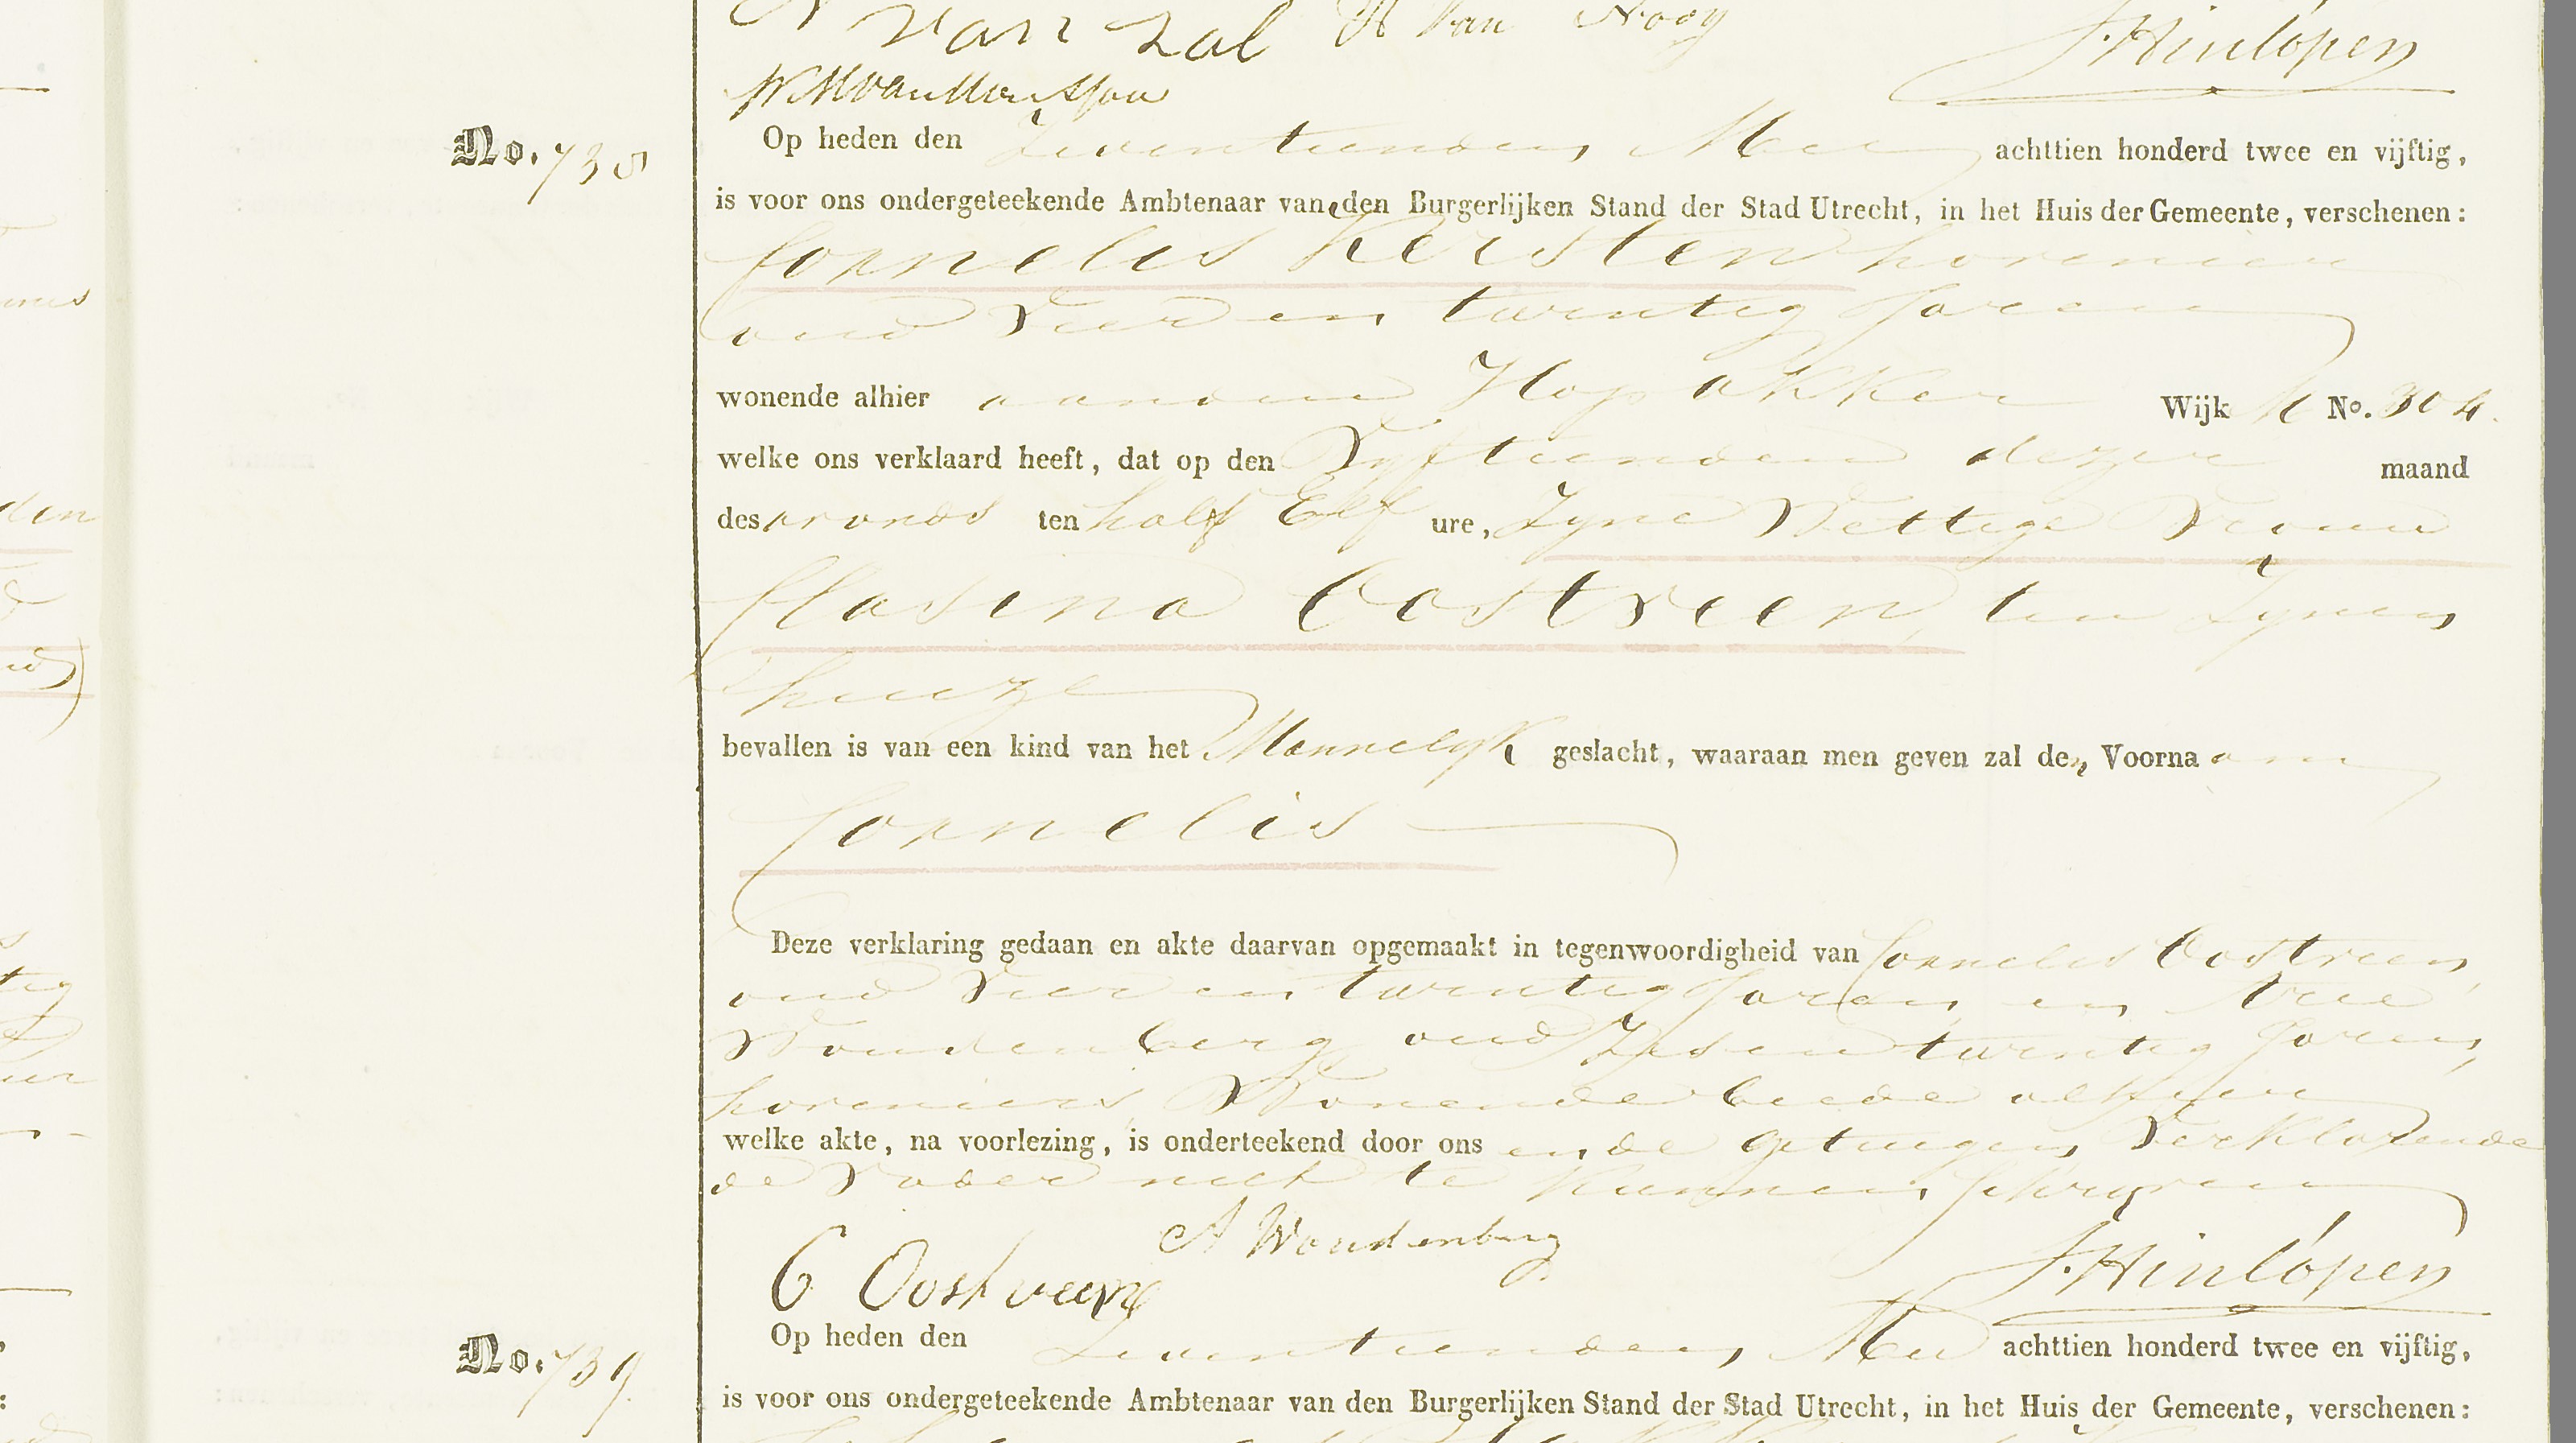 van Zal
J. Hinlópen
No. 738
Op heden den Zeventienden Mei achttien honderd twee en vijftig,
is voor ons ondergeteekende Ambtenaar van den Burgerlijken Stand der Stad Utrecht, in het Huis der Gemeente, verschenen:
Cornelis Kersten hovenier
oud Vier en twintig Jaren
wonende alhier aan den Hop akker Wijk No. 304.
welke ons verklaard heeft, dat op den Vyftienden dezer maand
des avonds ten half Elf ure, Zyne Wettige Vrouw
Clasina Oostveen, ten Zynen
huize
bevallen is van een kind van het Mannelyk geslacht, waaraan men geven zal den Voornaam
Cornelis
Deze verklaring gedaan en akte daarvan opgemaakt in tegenwoordigheid van Cornelis Oostveen,
oud Vier en twintig Jaren, en Arie
Woudenberg oud Zes en twintig Jaren,
hoveniers, Wonende beide alhier
welke akte, na voorlezing, is onderteekend door ons en de getuigen, Verklarende
de Vader niet te kunnen schryven
A Woudenberg
C Oostveen
J. Hinlópen
No. 739.
Op heden den Zeventienden Mei achttien honderd twee en vijftig,
is voor ons ondergeteekende Ambtenaar van den Burgerlijken Stand der Stad Utrecht, in het Huis der Gemeente, verschenen: